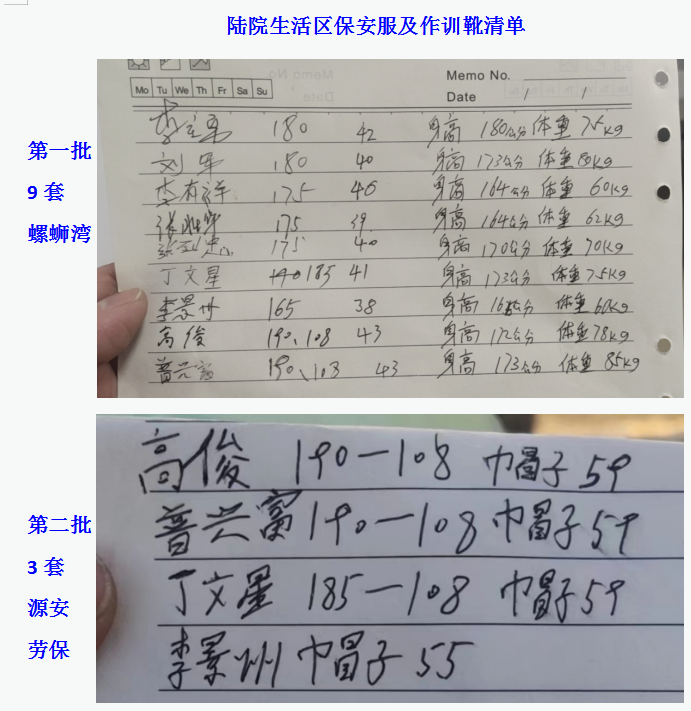 陆院生活区保安服及作训靴清单
第一批
9 套
螺蛳湾
Memo No.
Mo Tu We Th Fr Sa Su
Date / /
180 42 身高 180公分 体重 75kg
刘军 180 40 身高 173公分 体重 80kg
李有祥 175 40 身高 164公分 体重 60kg
175 39 身高 164公分 体重 62kg
175 40 身高 170公分 体重 70kg
丁文星 185 41 身高 173公分 体重 75kg
李景州 165 38 身高 体重 60kg
高俊 190、108 43 身高 172公分 体重 78kg
普兴富 190、108 43 身高 173公分 体重 85kg
第二批
3 套
源安
劳保
高俊 190—108 巾帽子 59
普兴富 190—108 巾帽子 59
丁文星 185—108 巾帽子 59
李景州 巾帽子 55